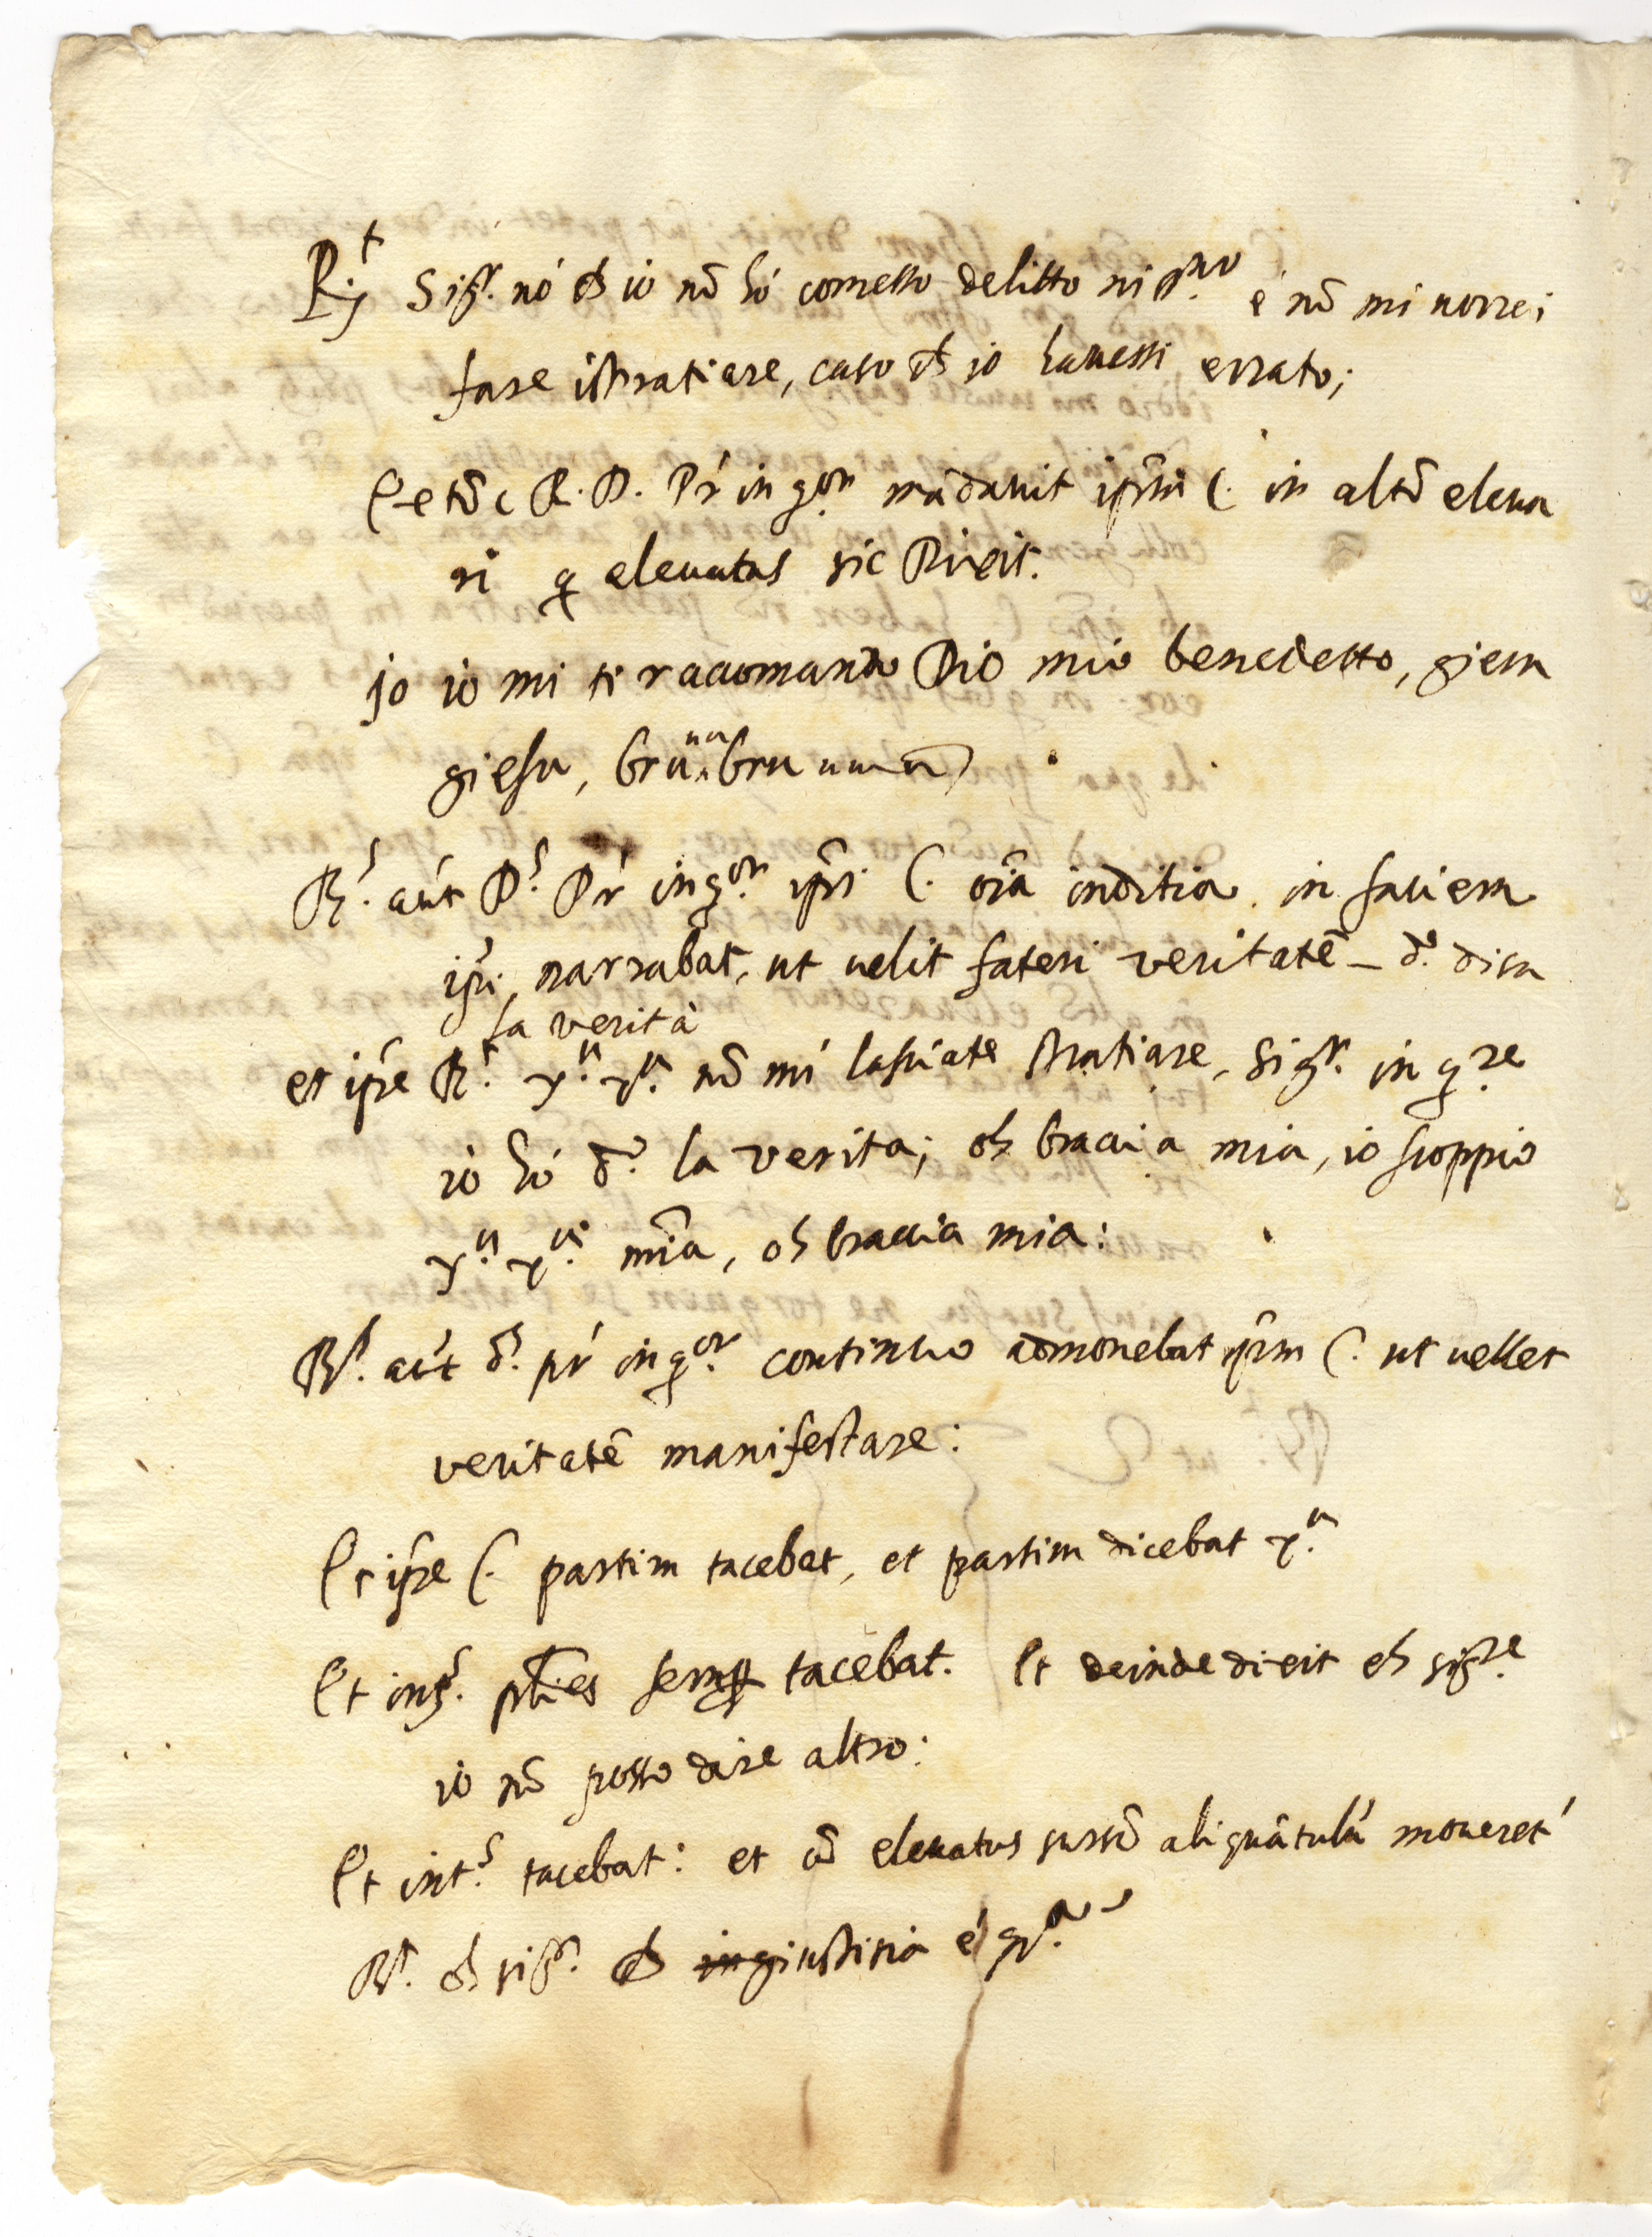 R.t Sigr. nò ch io nõ hò comesso delitto nissno. é nõ mi vorrei
fare istratiare, caso ch io havessi errato;
Et tũc R. D. Pr ingor. mãdavit ipm C. in altũ eleva
ri q elevatus sic Dixit.
jo io mi ti racomando Dio mio benedetto, giesu
giesu, bru bru
Rs. aũt Ds. Pr ingor. ipsi C. oĩa inditia in faciem
ipsi, narrabat, ut velit fateri veritatẽ _ do. dica
la verità
et ipse Rt. xu. xu. nõ mi lasciate stratiare, sigr. ingre
io hò do. la verita; oh bracia mia, io scoppio
xu. xu. mia, oh braccia mia:
Rs. aũt ds. pr ingor. continuo admonebat ipm C. ut vellet
veritatẽ manifestare:
Et ipse C. partim tacebat, et partim dicebat xu.
Et ints. plies semp tacebat. Et deinde dixit oh sigre.
io nõ posso dire altro:
Et ints. tacebat: et cũ elevatus sursũ aliquãtulũ moveret
Rt. oh sigr. ch ingiustitia é qa.